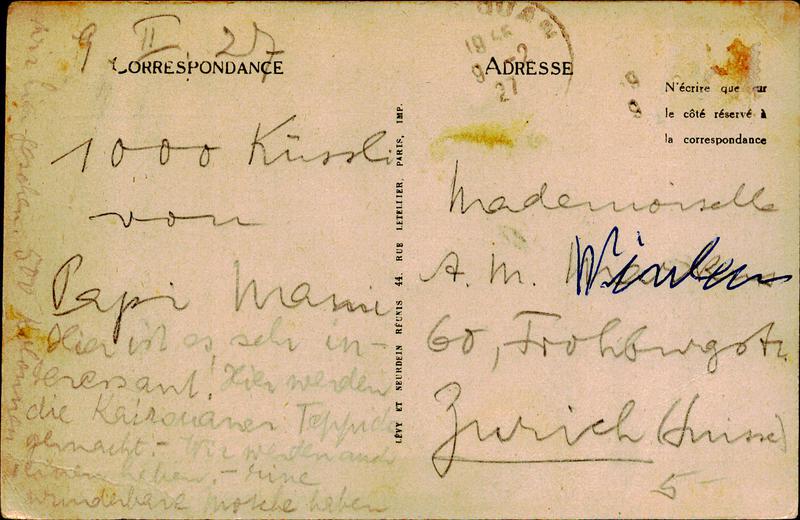 9. II. 27
CORRESPONDANCE
1000 Küssli
von
Papi Mami
Hier ist es sehr in-
teressant! Hier werden
die Kairouaner Teppiche
gemacht. - Wir werden auch
einen haben. - Eine
wunderbare Moschee haben
500
LÉVY ET NEURDEIN RÉUNIS 44, RUE LETELLIER, PARIS, IMP.
OUAN
9 -2
27
ADRESSE
N'écrire que sur
le côté réservé à
la correspondance
Mademoiselle
A. M.
60, Frohburgstr.
Zurich (Suisse)
5